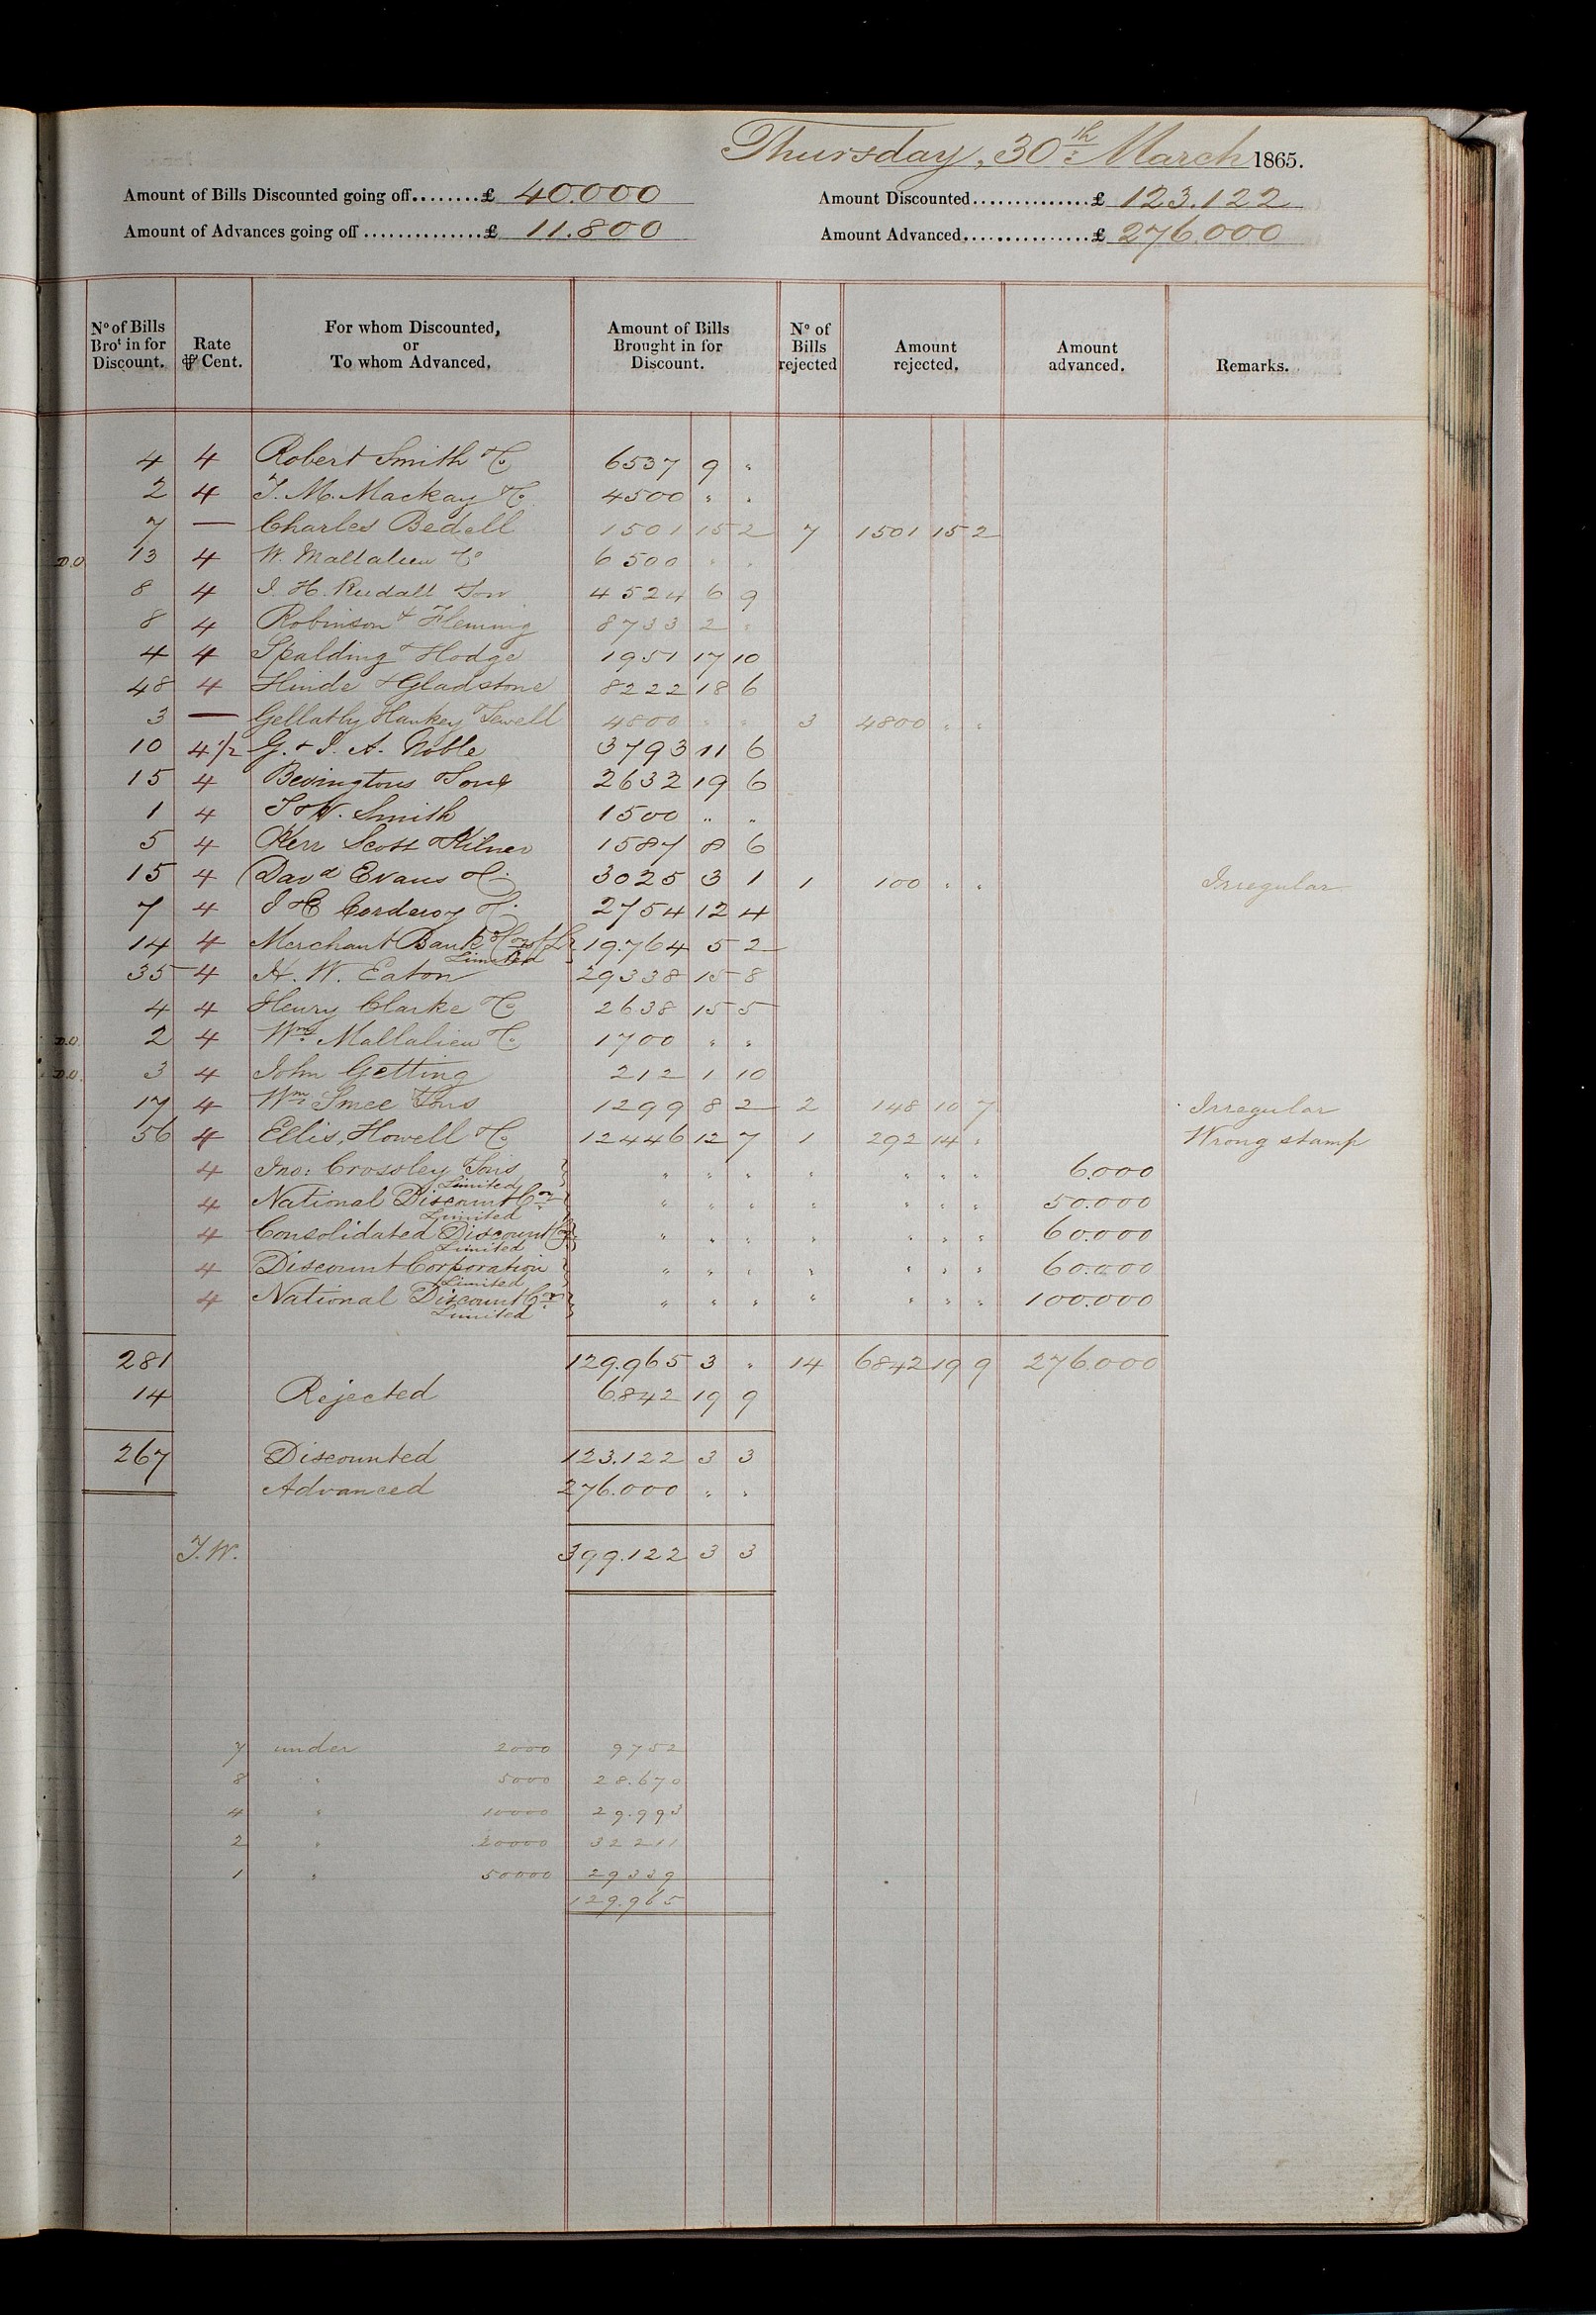 Thursday, 30th March 1865.
Amount of Bills Discounted going off........£ 40.000 Amount Discounted..............£ 123.122
Amount of Advances going off..............£ 11.800 Amount Advanced................£ 276.000
No of Bills Brot in for Discount. Rate ⅌ Cent. For whom Discounted, or To whom Advanced. Amount of Bills Brought in for Discount. No of Bills rejected Amount rejected. Amount advanced. Remarks.
4 4 Robert Smith & Co 6537 9 "
2 4 T. M. Mackay & Co 4500 " "
7 — Charles Bedell 1501 15 2 7 1501 15 2
D.O. 13 4 W. Mallalieu & Co 6500 " "
8 4 J. H. Rudall & Son 4524 6 9
8 4 Robinson & Fleming 8733 2 "
4 4 Spalding & Hodge 1951 17 10
48 4 Hinde & Gladstone 8222 18 6
3 — Gellatly Hankey & Sewell 4800 " " 3 4800 " "
10 4 1/2 G. & J. A. Noble 3793 11 6
15 4 Bevingtons & Sons 2632 19 6
1 4 T & W. Smith 1500 " "
5 4 Kerr Scott & Kilner 1587 8 6
15 4 Davd Evans & Co 3025 3 1 1 100 " " Irregular
7 4 J & C Corderoy & Co 2754 12 4
14 4 Merchant Bank Limited 19.764 5 2
35 4 H. W. Eaton 29338 15 8
4 4 Henry Clarke & Co 2638 15 5
D.O. 2 4 Wm Mallalieu & Co 1700 " "
D.O. 3 4 John Getting 212 1 10
17 4 Wm Smee & Sons 1299 8 2 2 148 10 7 Irregular
56 4 Ellis, Howell & Co 12446 12 7 1 292 14 " Wrong stamp
4 Jno: Crossley & Sons Limited " " " " " " " 6.000
4 National Discount Coy Limited " " " " " " " 50.000
4 Consolidated Discount Coy Limited " " " " " " " 60.000
4 Discount Corporation Limited " " " " " " " 60.000
4 National Discount Coy Limited " " " " " " " 100.000
281 129.965 3 " 14 6842 19 9 276.000
14 Rejected 6.842 19 9
267 Discounted 123.122 3 3
Advanced 276.000 " "
T.W. 399.122 3 3
7 under 2000 9752
8 " 5000 28.670
4 " 10000 29.993
2 " 20000 32211
1 " 50000 29339
129.965